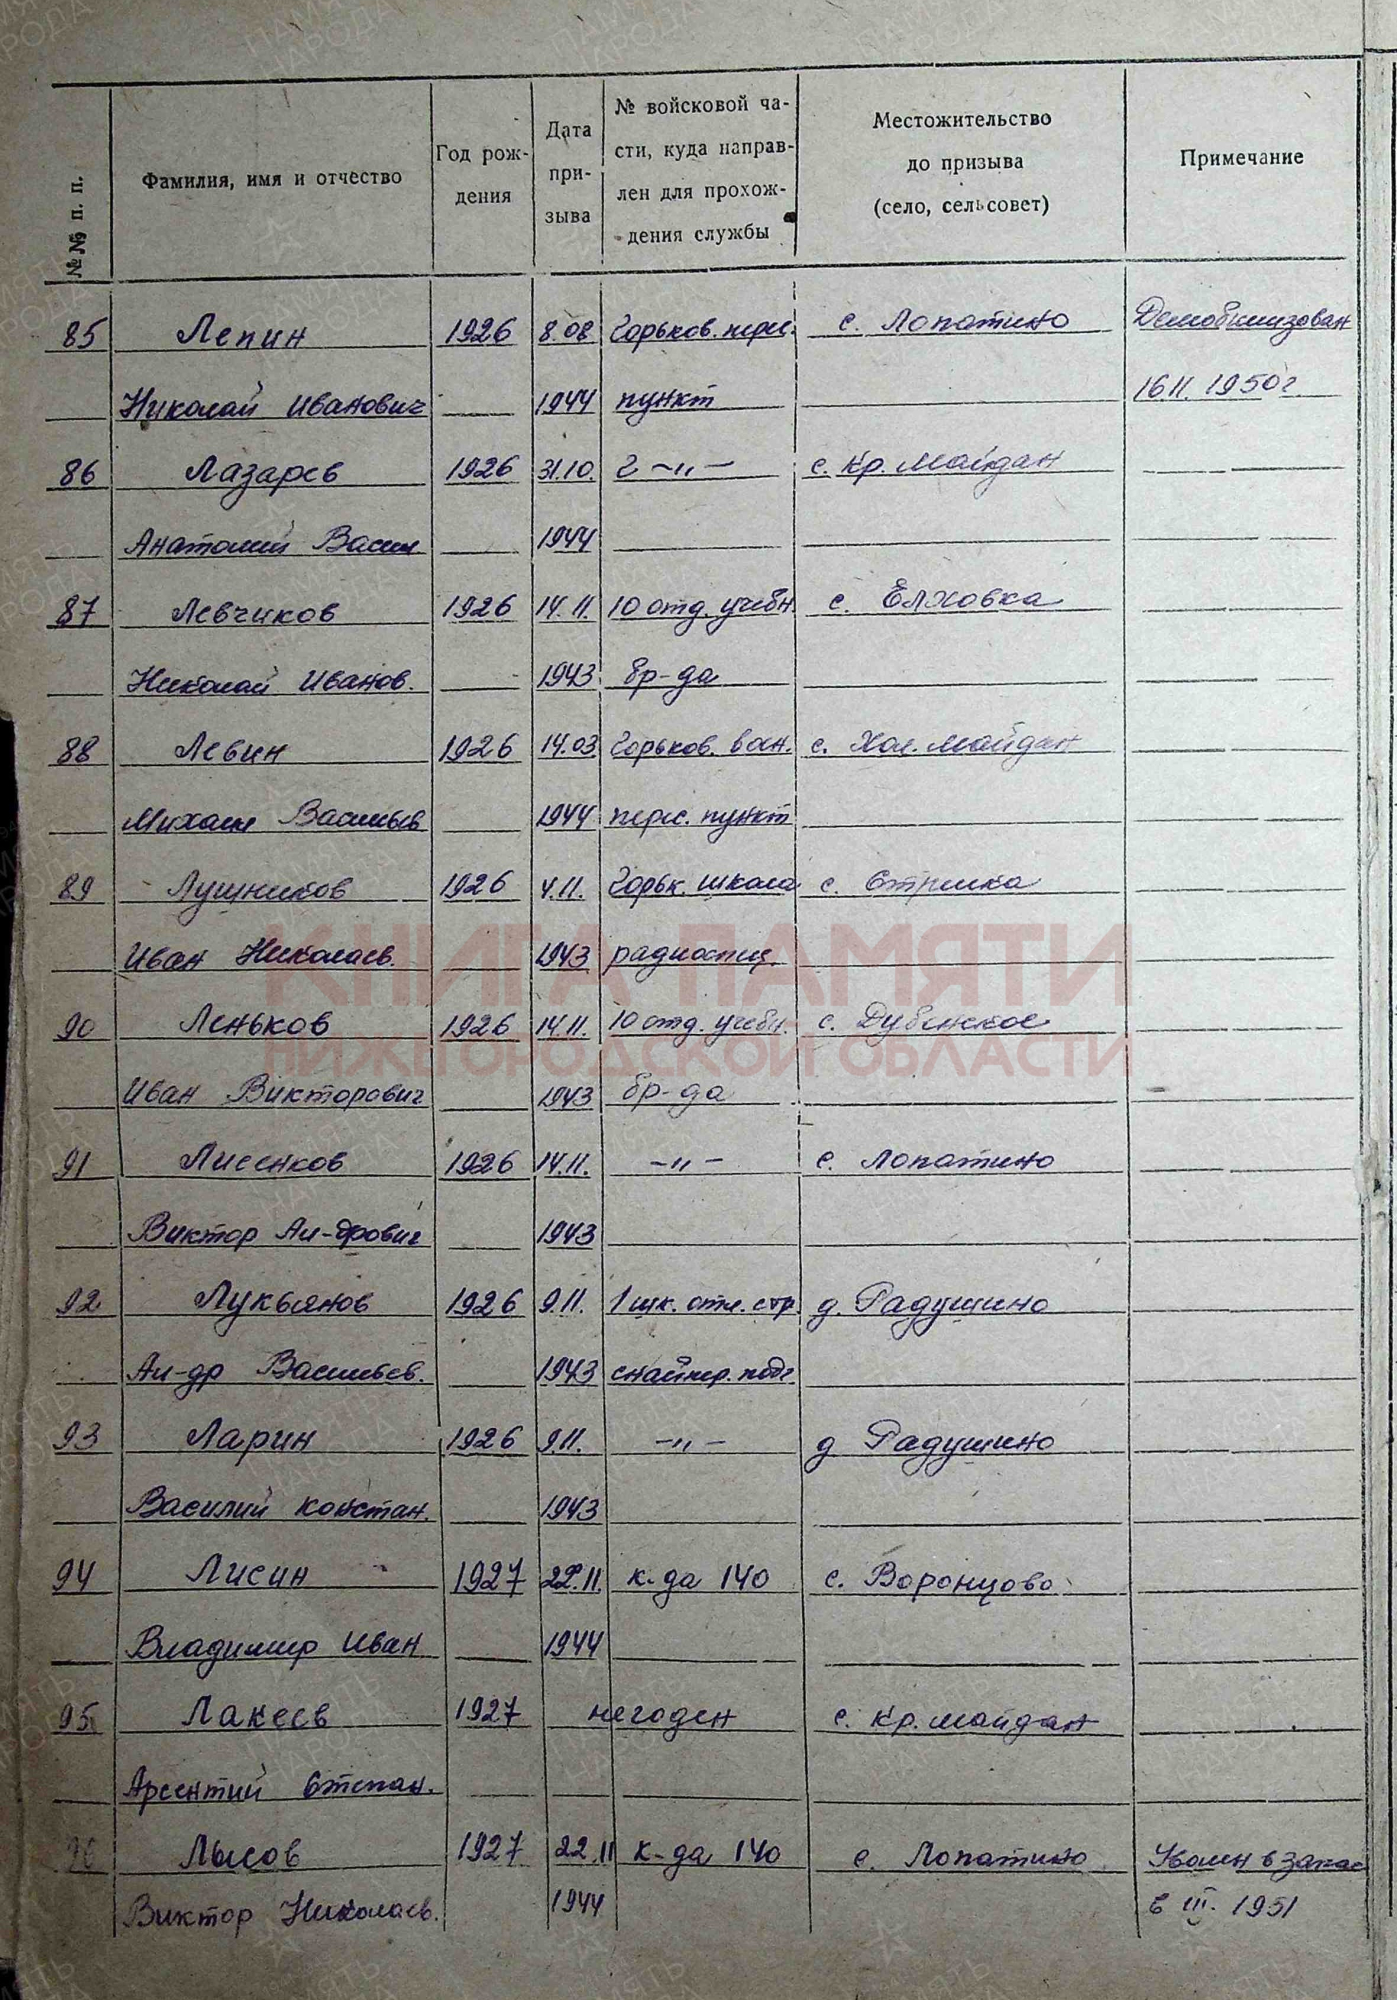 №№ п. п. Фамилия, имя и отчество Год рождения Дата призыва № войсковой части, куда направлен для прохождения службы Местожительство до призыва (село, сельсовет) Примечание
85 Лепин 1926 8.08 Горьков. перес. с. Лопатино Демобилизован
Николай Иванович 1944 пункт 16 II. 1950 г.
86 Лазарев 1926 31.10. г -„- с. Кр. Майдан
Анатолий Васил 1944
87 Левчиков 1926 14.11. 10 отд. учебн. с. Елховка
Николай Иванов. 1943 бр-да
88 Левин 1926 14.03 Горьков. воен. с. Хол. Майдан
Михаил Васильев 1944 перес. пункт
89 Лушников 1926 4.11. Горьк. школа с. Стрелка
Иван Николаев. 1943 радиоспец.
90 Леньков 1926 14.11. 10 отд. учебн. с. Дубенское
Иван Викторович 1943 бр-да
91 Лисенков 1926 14.11. -„- с. Лопатино
Виктор Ал-дрович 1943
92 Лукьянов 1926 9.11. 1 шк. отл. стр. д. Радушино
Ал-др Васильев. 1943 снайпер. подг.
93 Ларин 1926 9.11. -„- д Радушино
Василий Констан. 1943
94 Лисин 1927 22.11. к-да 140 с. Воронцово
Владимир Иван 1944
95 Лакеев 1927 негоден с. Кр. Майдан
Арсентий Степан.
96 Лысов 1927 22.11 к-да 140 с. Лопатино Уволен в запас
Виктор Николаев. 1944 в III. 1951
КНИГА ПАМЯТИ
НИЖЕГОРОДСКОЙ ОБЛАСТИ
ПАМЯТЬ НАРОДА